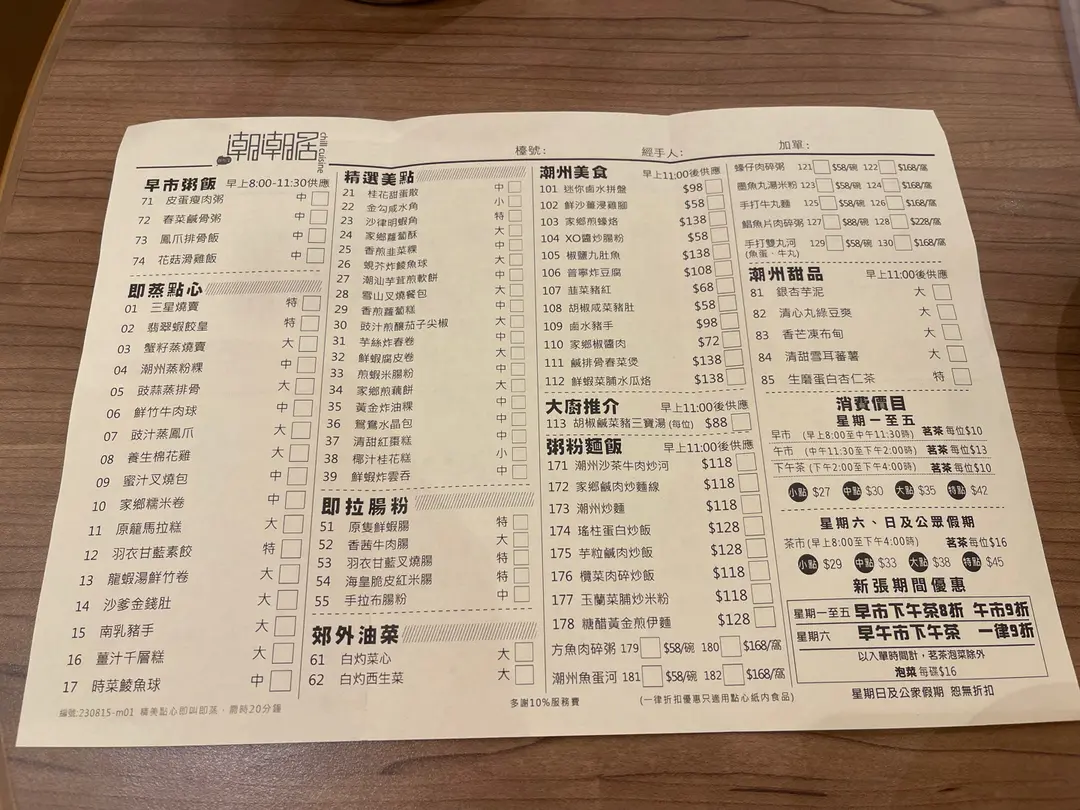 潮潮居
chill cuisine
檯號:
經手人:
加單:
早市粥飯 早上8:00-11:30供應
71 皮蛋瘦肉粥 中
72 春菜鹹骨粥 中
73 鳳爪排骨飯 中
74 花菇滑雞飯 中
即蒸點心
01 三星燒賣 特
02 翡翠蝦餃皇 特
03 蟹籽蒸燒賣 大
04 潮州蒸粉粿 中
05 豉蒜蒸排骨 大
06 鮮竹牛肉球 中
07 豉汁蒸鳳爪 大
08 養生棉花雞 大
09 蜜汁叉燒包 中
10 家鄉糯米卷 中
11 原籠馬拉糕 大
12 羽衣甘藍素餃 特
13 龍蝦湯鮮竹卷 大
14 沙爹金錢肚 大
15 南乳豬手 大
16 薑汁千層糕 大
17 時菜鯪魚球 中
編號:230815-m01 精美點心即叫即蒸，需時20分鐘
精選美點
21 桂花甜蛋散 中
22 金勾咸水角 小
23 沙律明蝦角 特
24 家鄉蘿蔔酥 大
25 香煎韭菜粿 大
26 蜆芥炸鯪魚球 中
27 潮汕芋茸煎軟餅 中
28 雪山叉燒餐包 大
29 香煎蘿蔔糕 中
30 豉汁煎釀茄子尖椒 大
31 芋絲炸春卷 中
32 鮮蝦腐皮卷 大
33 煎蝦米腸粉 中
34 家鄉煎藕餅 大
35 黃金炸油粿 中
36 鴛鴦水晶包 中
37 清甜紅棗糕 中
38 椰汁桂花糕 小
39 鮮蝦炸雲吞 中
即拉腸粉
51 原隻鮮蝦腸 特
52 香茜牛肉腸 大
53 羽衣甘藍叉燒腸 特
54 海皇脆皮紅米腸 特
55 手拉布腸粉 中
郊外油菜
61 白灼菜心 大
62 白灼西生菜 大
潮州美食 早上11:00後供應
101 迷你鹵水拼盤 $98
102 鮮沙薑浸雞腳 $58
103 家鄉煎蠔烙 $138
104 XO醬炒腸粉 $58
105 椒鹽九肚魚 $138
106 普寧炸豆腐 $108
107 韮菜豬紅 $68
108 胡椒咸菜豬肚 $58
109 鹵水豬手 $98
110 家鄉椒醬肉 $72
111 鹹排骨春菜煲 $138
112 鮮蝦菜脯水瓜烙 $138
大廚推介 早上11:00後供應
113 胡椒鹹菜豬三寶湯 (每位) $88
粥粉麵飯 早上11:00後供應
171 潮州沙茶牛肉炒河 $118
172 家鄉鹹肉炒麵線 $118
173 潮州炒麵 $118
174 瑤柱蛋白炒飯 $128
175 芋粒鹹肉炒飯 $128
176 欖菜肉碎炒飯 $118
177 玉蘭菜脯炒米粉 $118
178 糖醋黃金煎伊麵 $128
方魚肉碎粥 179 $58/碗 180 $168/窩
潮州魚蛋河 181 $58/碗 182 $168/窩
多謝10%服務費
(一律折扣優惠只適用點心紙內食品)
蠔仔肉碎粥 121 $58/碗 122 $168/窩
墨魚丸湯米粉 123 $58/碗 124 $168/窩
手打牛丸麵 125 $58/碗 126 $168/窩
鯧魚片肉碎粥 127 $88/碗 128 $228/窩
手打雙丸河 129 $58/碗 130 $168/窩
(魚蛋、牛丸)
潮州甜品 早上11:00後供應
81 銀杏芋泥 大
82 清心丸綠豆爽 大
83 香芒凍布甸 大
84 清甜雪耳蕃薯 大
85 生磨蛋白杏仁茶 特
消費價目
星期一至五
早市 (早上8:00至中午11:30時) 茗茶 每位$10
午市 (中午11:30至下午2:00時) 茗茶 每位$13
下午茶 (下午2:00至下午4:00時) 茗茶 每位$10
小點 $27 中點 $30 大點 $35 特點 $42
星期六、日及公眾假期
茶市(早上8:00至下午4:00時) 茗茶每位$16
小點 $29 中點 $33 大點 $38 特點 $45
新張期間優惠
星期一至五 早市下午茶8折 午市9折
星期六 早午市下午茶 一律9折
以入單時間計，茗茶泡菜除外
泡菜 每碟$16
星期日及公眾假期 恕無折扣